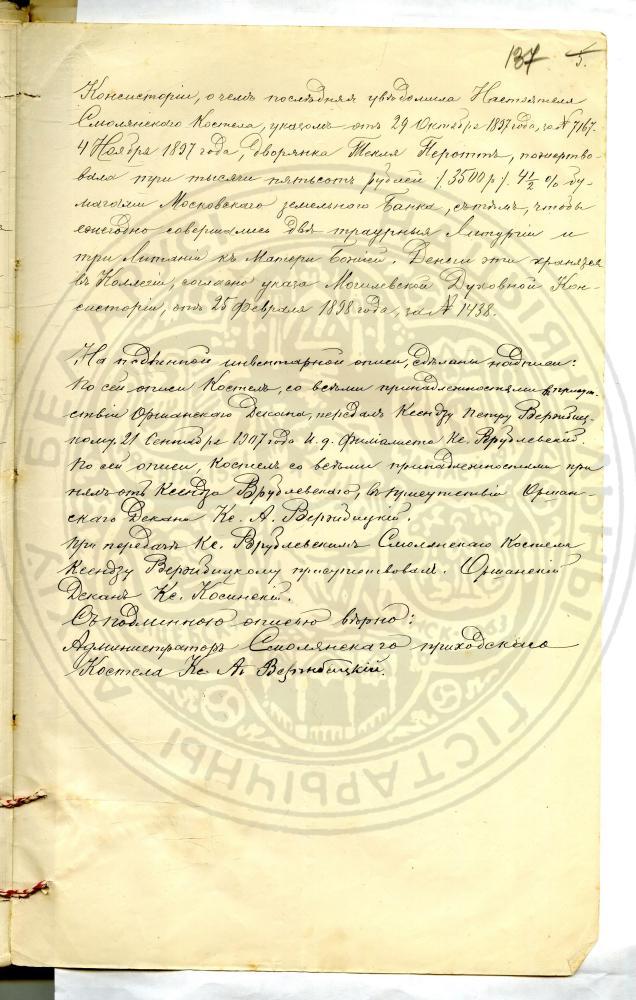 137 5.
Консисторіи, о чемъ послѣдняя увѣдомила Настоятеля
Смолянскаго Костела, указомъ отъ 29 Октября 1897 года, за № 7167.
4 Ноября 1897 года, дворянка Текля Пероттъ, пожертво-
вала три тысячи пятьсотъ рублей /3500 р/. 4½ % бу-
магами Московскаго земельнаго Банка, съ тѣмъ, чтобы
ежегодно совершались двѣ траурныя Литургіи и
три Литаніи къ Матери Божіей. Деньги эти хранятся
въ Коллегіи, согласно указа Могилевской Духовной Кон-
систоріи, отъ 25 Февраля 1898 года, за № 1438.
На подлинной инвентарной описи, сдѣланы надписи:
По сей описи Костелъ, со всѣми принадлежностями въ присут-
ствіи Оршанскаго Декана, передалъ Ксендзу Петру Вержбиц-
кому. 21 Сентября 1907 года И. д. филіалиста Кс. Врублевскій.
По сей описи, Костелъ со всѣми принадлежностями при
нялъ отъ Ксендза Врублевскаго, въ присутствіи Оршан-
скаго Декана Кс. А. Вержбицкій.
При передачѣ Кс. Врублевскимъ Смолянскаго Костела
Ксендзу Вержбицкому присутствовалъ. Оршанскій
Деканъ Кс. Косинскій.
Съ подлинною описью вѣрно:
Администраторъ Смолянскаго приходскаго
Костела Кс А. Вержбицкій.
ГІСТАРЫЧНЫ